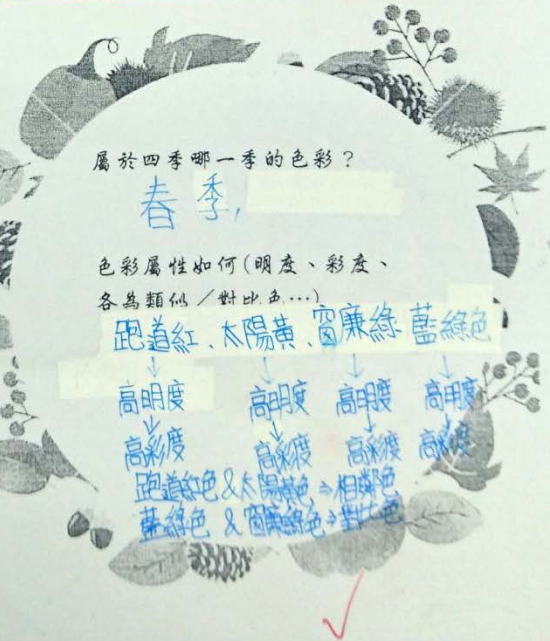 屬於四季哪一季的色彩？
春季,
色彩屬性如何(明度、彩度、
各為類似／對比色…)
跑道紅、太陽黃、窗廉綠 藍綠色
↓ ↓ ↓ ↓
高明度 高明度 高明度 高明度
↓ ↓ ↓ ↓
高彩度 高彩度 高彩度 高彩度
跑道紅色&太陽黃色⇒相鄰色
藍綠色 & 窗廉綠色⇒對比色